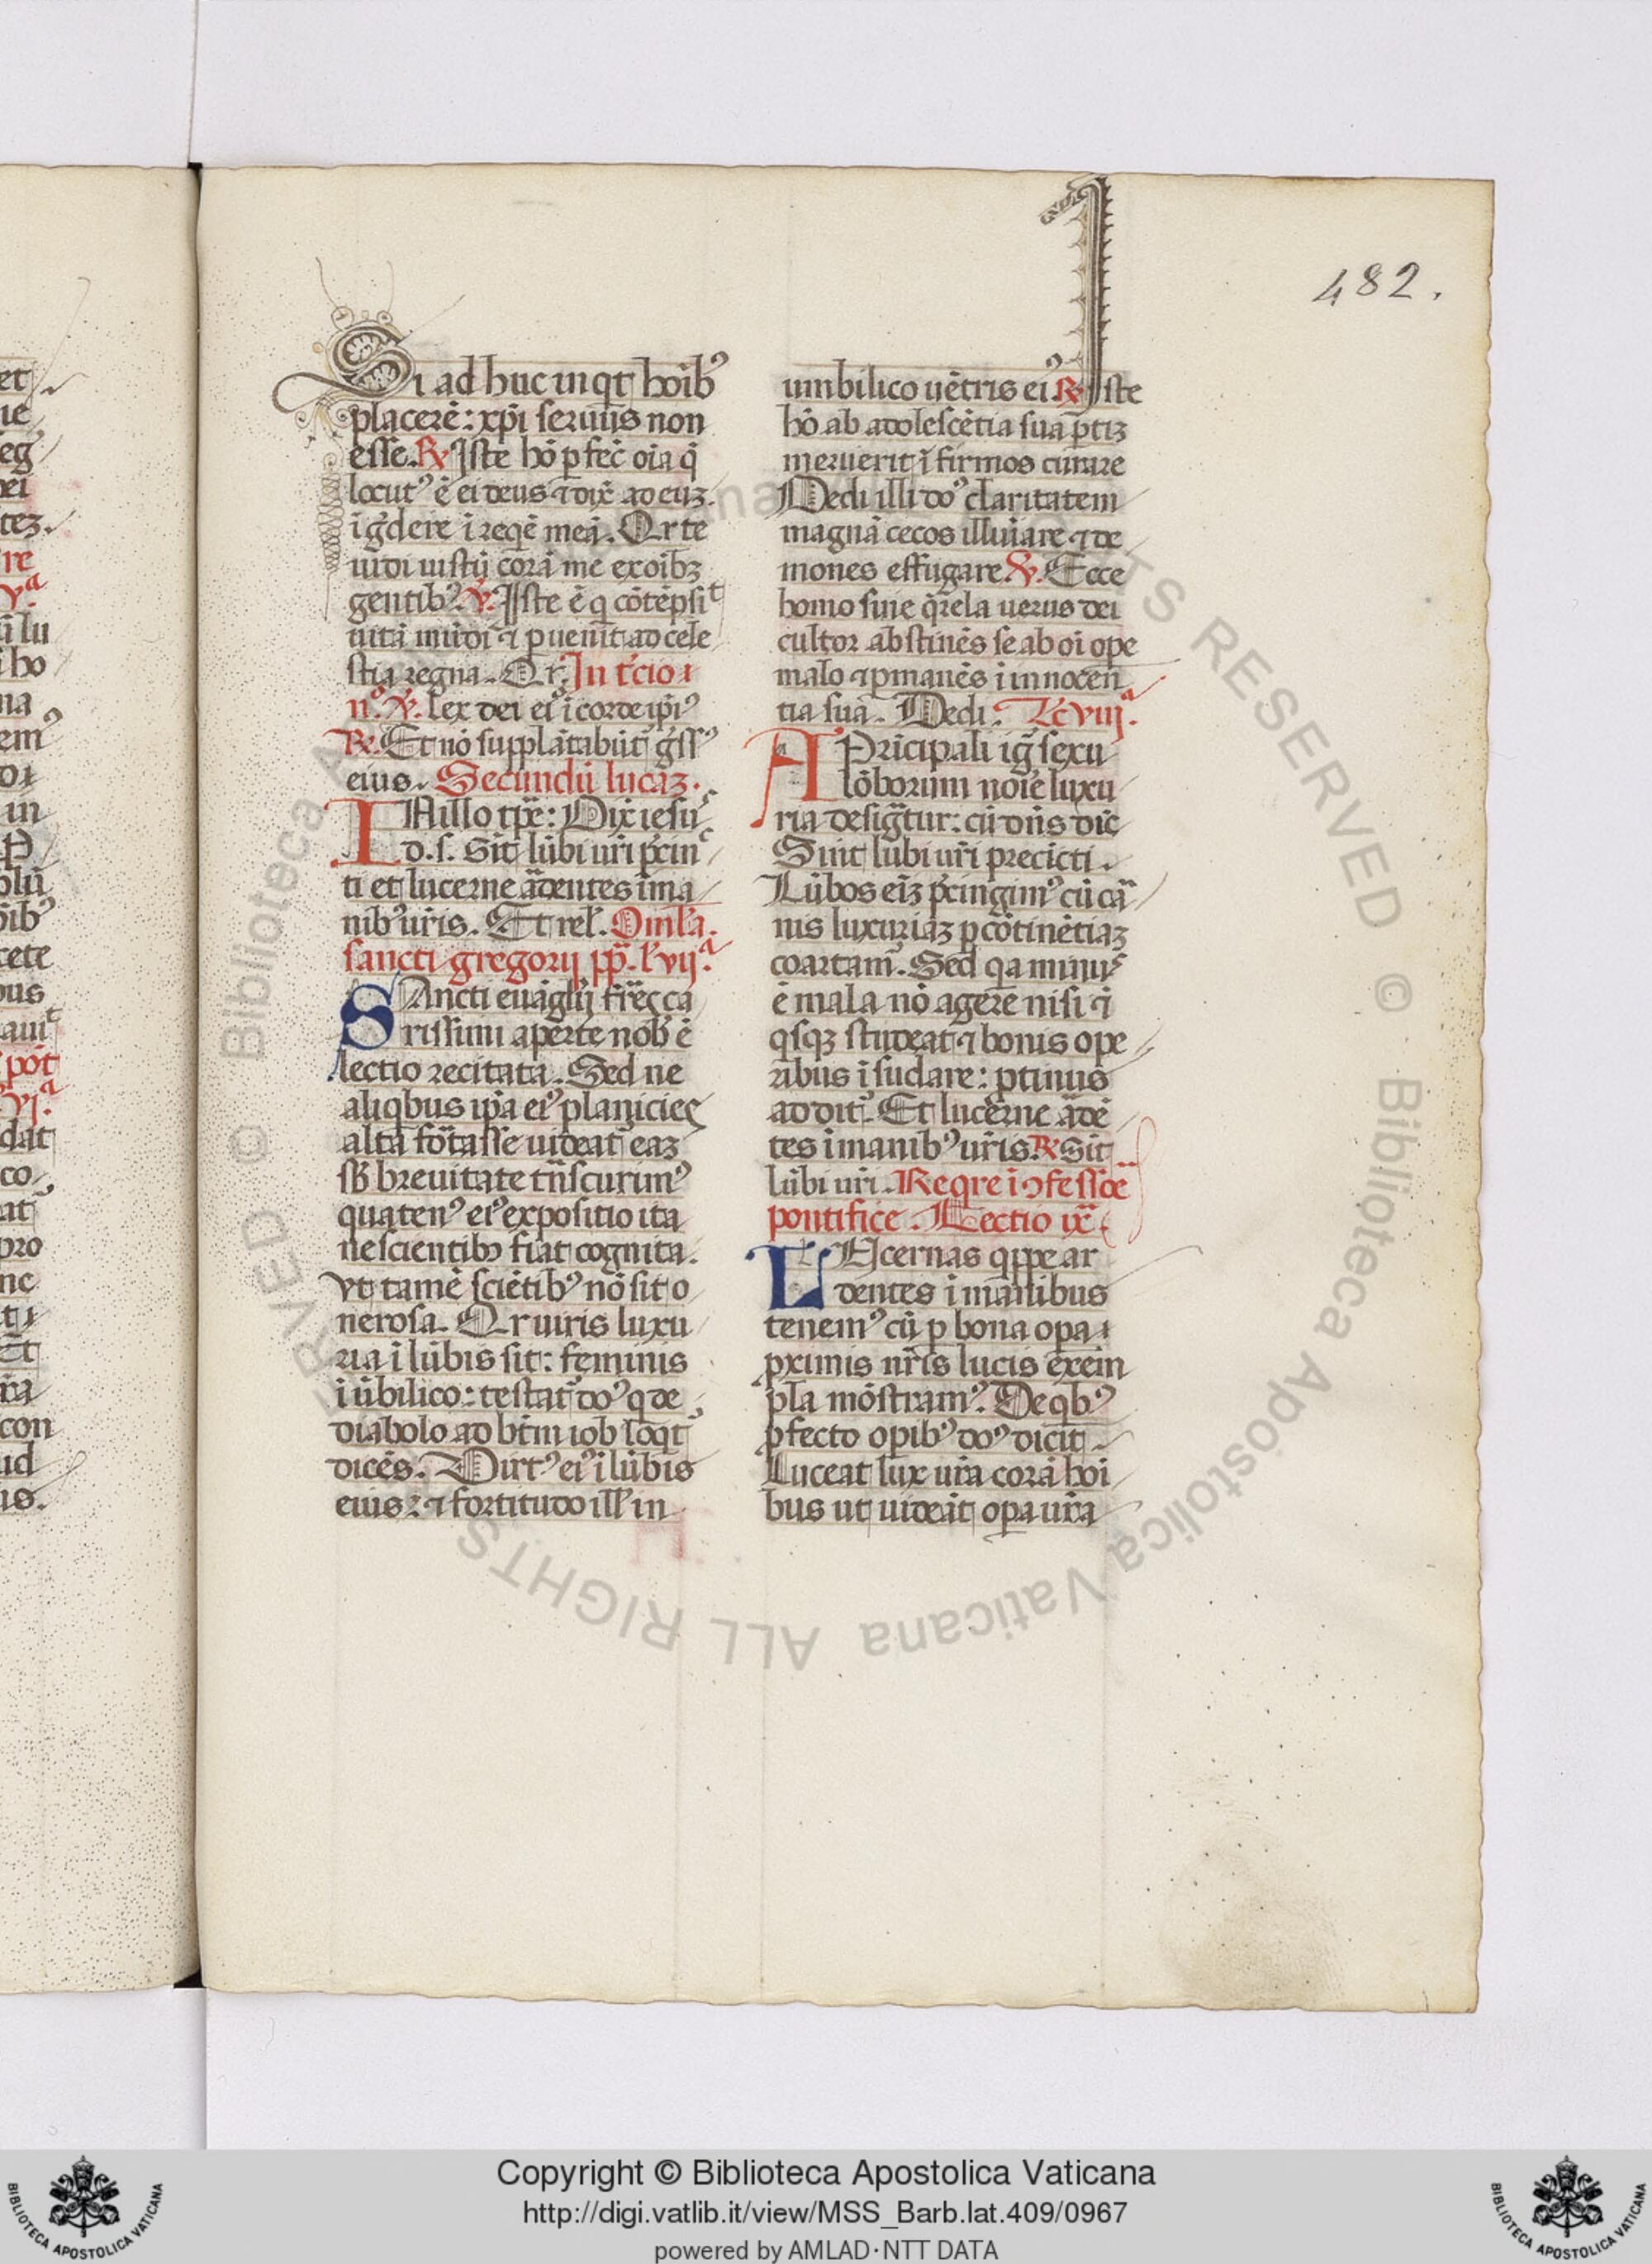 482.
Si ad huc inqt hoib9
placerē: xp̄i seruus non
esse. R Iste hō pfec̄ oīa q̄
locut9 ē ei deus ⁊ dix̄ ad euz.
īḡdere ī reqē meā. Qr te
uidi iustū corā me ex oībz
gentib9. V. Iste ē q cōtēpsit
uitā mūdi ⁊ puenit ad cele
stia regna. Qr. In t̄cio
n9. V. Lex dei ei9 ī corde ip̄i9
R. Et nō supplātabūt gss9
eius. Secundū lucaz.
IN illo tp̄e: Dix̄ iesus
d. s. Sīt lūbi ur̄i p̄cin
ti et lucerne ādentes ī ma
nib9 ur̄is. Et rel. Omla.
sancti gregorij pp̄. l' vijª.
SAncti euāglij fr̄es ca
rissimi aperte nob̄ ē
lectio recitata. Sed ne
aliqbus ip̄a ei9 planicies
alta fōtasse uideat eaz
sb̄ breuitate tn̄scurim9
quaten9 ei9 expositio ita
nescientib9 fiat cognita.
vt tamē sciētib9 nō sit o
nerosa. Qr uiris luxu
ria ī lūbis sit: feminis
ī ūbilico: testat̄ do9 q de
diabolo ad bt̄m iob loqt̄
dicēs. Virt9 ei9 ī lūbis
eius: ⁊ fortitudo ill in
umbilico uētris ei9. R Iste
hō ab adolescētia sua p̄tiz
meruerit ī firmos curare
Dedi illi do9 claritatem
magnā cecos illuīare ⁊ de
mones effugare. V. Ecce
homo sine q̄rela uerus dei
cultor abstinēs se ab oī ope
malo ⁊ pmanēs ī innocen
tia sua. Dedi. Lc viijª.
APrīcipali iḡ sexu
lōborum noīe luxu
ria desiḡtur: cū dn̄s dic̄
Sint lūbi ur̄i precīcti.
Lūbos eīz p̄cingim9 cū ca
nis luxuriaz p cōtinētiaz
coartam9. Sed qa minus
ē mala nō agere nisi ⁊
qsqz studeat ⁊ bonis ope
ribus īsudare: ptinus
addit. Et lucerne āde
tes ī manib9 ur̄is. R Sīt
lūbi ur̄i. Reqre ī ɔfessoe
pontifice. Lectio ix
LUcernas qppe ar
dentes ī manibus
tenem9 cū p bona opa
pximis nr̄is lucis exem
pla mōstram9. De qb9
pfecto opib9 do9 dicit.
Luceat lux ur̄a corā hoi
bus ut uideāt opa ur̄a
Copyright © Biblioteca Apostolica Vaticana
http://digi.vatlib.it/view/MSS_Barb.lat.409/0967
powered by AMLAD·NTT DATA
BIBLIOTECA APOSTOLICA VATICANA
BIBLIOTECA APOSTOLICA VATICANA